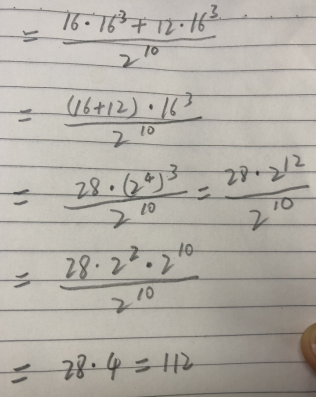 = (16·16³ + 12·16³) / 2¹⁰
= ((16+12)·16³) / 2¹⁰
= (28·(2⁴)³) / 2¹⁰ = (28·2¹²) / 2¹⁰
= (28·2²·2¹⁰) / 2¹⁰
= 28·4 = 112